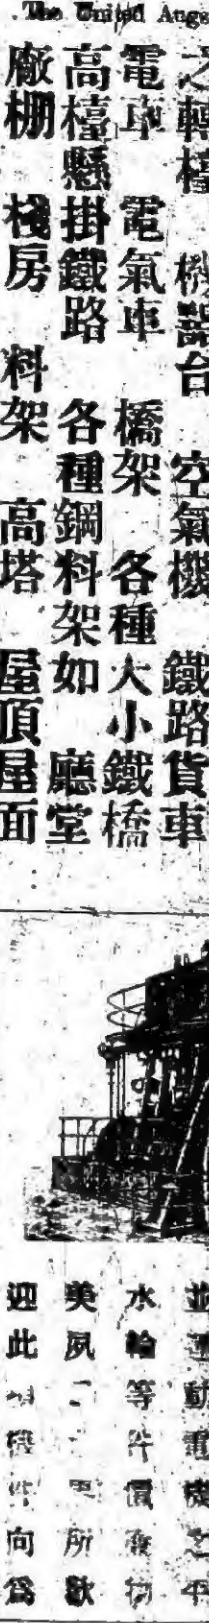 The United Augs
之轉檯 機器台 空氣機 鐵路貨車
電車 電氣車 橋架 各種大小鐵橋
高檯懸掛鐵路 各種鋼料架如 廳堂
廠棚 棧房 料架 高塔 屋頂屋面
並 動電機之平
水輪等件價廉物
美夙 所歡
迎此 向爲